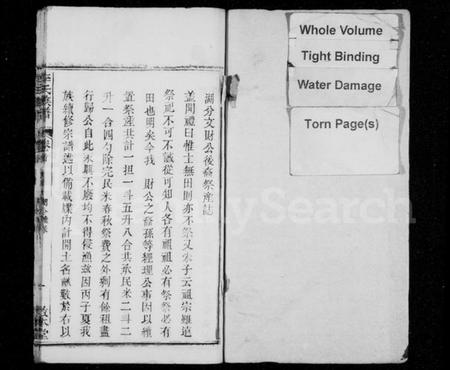 湖分文財公後裔祭產誌
蓋聞禮曰惟士無田則亦不祭又朱子云祖宗雖遠
祭祀不可不誠從可知人各有祖祖必有祭祭必有
田也明矣今我 財公之裔孫等經理公事因以積
置祭產共計一担一斗五升八合共承民米二斗二
升一合四勺除完民米春秋祭費之外剩有餘租盡
行歸公自此永興不廢均不得侵漁茲因丙子夏我
族續修宗譜遂以備載牒內計開土名畝數於右以
敦本堂
Whole Volume
Tight Binding
Water Damage
Torn Page(s)
MySearch